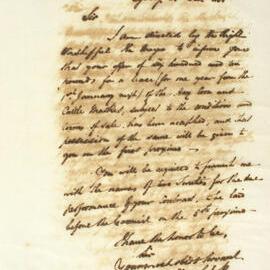 Sir
I am directed by the Right
Worshipful the Mayor to inform you
that your offer of six hundred and
pounds, for a lease (for one year from the
1st January next) of the Hay, Corn and
Cattle Markets, subject to the conditions and
terms of sale, has been accepted, and that
possession of the same will be given to
you on the first proximo.
You will be required to furnish me
with the names of two Sureties for the due
performance of your Contract, to be laid
before the Council on the 5th proximo.
I have the honor to be,
Sir
Your most obedt Servant